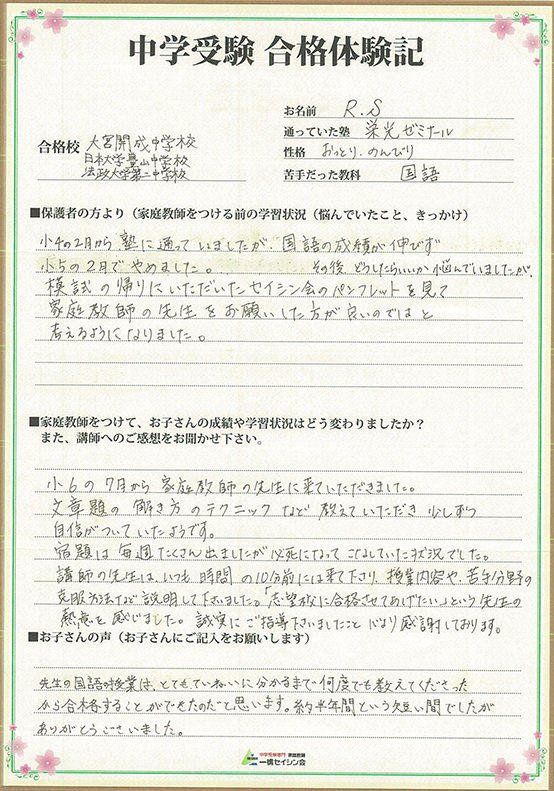 中学受験 合格体験記
お名前 R.S
通っていた塾 栄光ゼミナール
性格 おっとり・のんびり
苦手だった教科 国語
合格校 大宮開成中学校
日本大学豊山中学校
法政大学第二中学校
■保護者の方より（家庭教師をつける前の学習状況（悩んでいたこと、きっかけ）
小4の2月から塾に通っていましたが、国語の成績が伸びず
小5の2月でやめました。 その後、どうしたらいいか悩んでいましたが、
模試の帰りにいただいたセイシン会のパンフレットを見て
家庭教師の先生をお願いした方が良いのではと
考えるようになりました。
■家庭教師をつけて、お子さんの成績や学習状況はどう変わりましたか？
また、講師へのご感想をお聞かせ下さい。
小6の7月から家庭教師の先生に来ていただきました。
文章題の解き方のテクニックなど教えていただき少しずつ
自信がついていたようです。
宿題は毎週たくさん出ましたが必死になってこなしていた状況でした。
講師の先生は、いつも時間の10分前には来て下さり、授業内容や、苦手分野の
克服方法など説明して下さいました。「志望校に合格させてあげたい」という先生の
熱意を感じました。誠実にご指導下さいましたこと心より感謝しております。
■お子さんの声（お子さんにご記入をお願いします）
先生の国語の授業は、とてもていねいに分かるまで何度でも教えてくださった
から合格することができたのだと思います。約半年間という短い間でしたが
ありがとうございました。
中学受験専門 家庭教師
一橋セイシン会